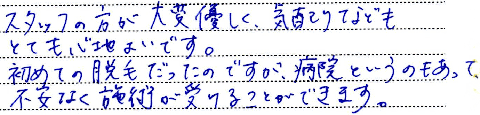 スタッフの方が大変優しく、気配りなども
とても心地よいです。
初めての脱毛だったのですが、病院というのもあって、
不安なく施術が受けることができます。